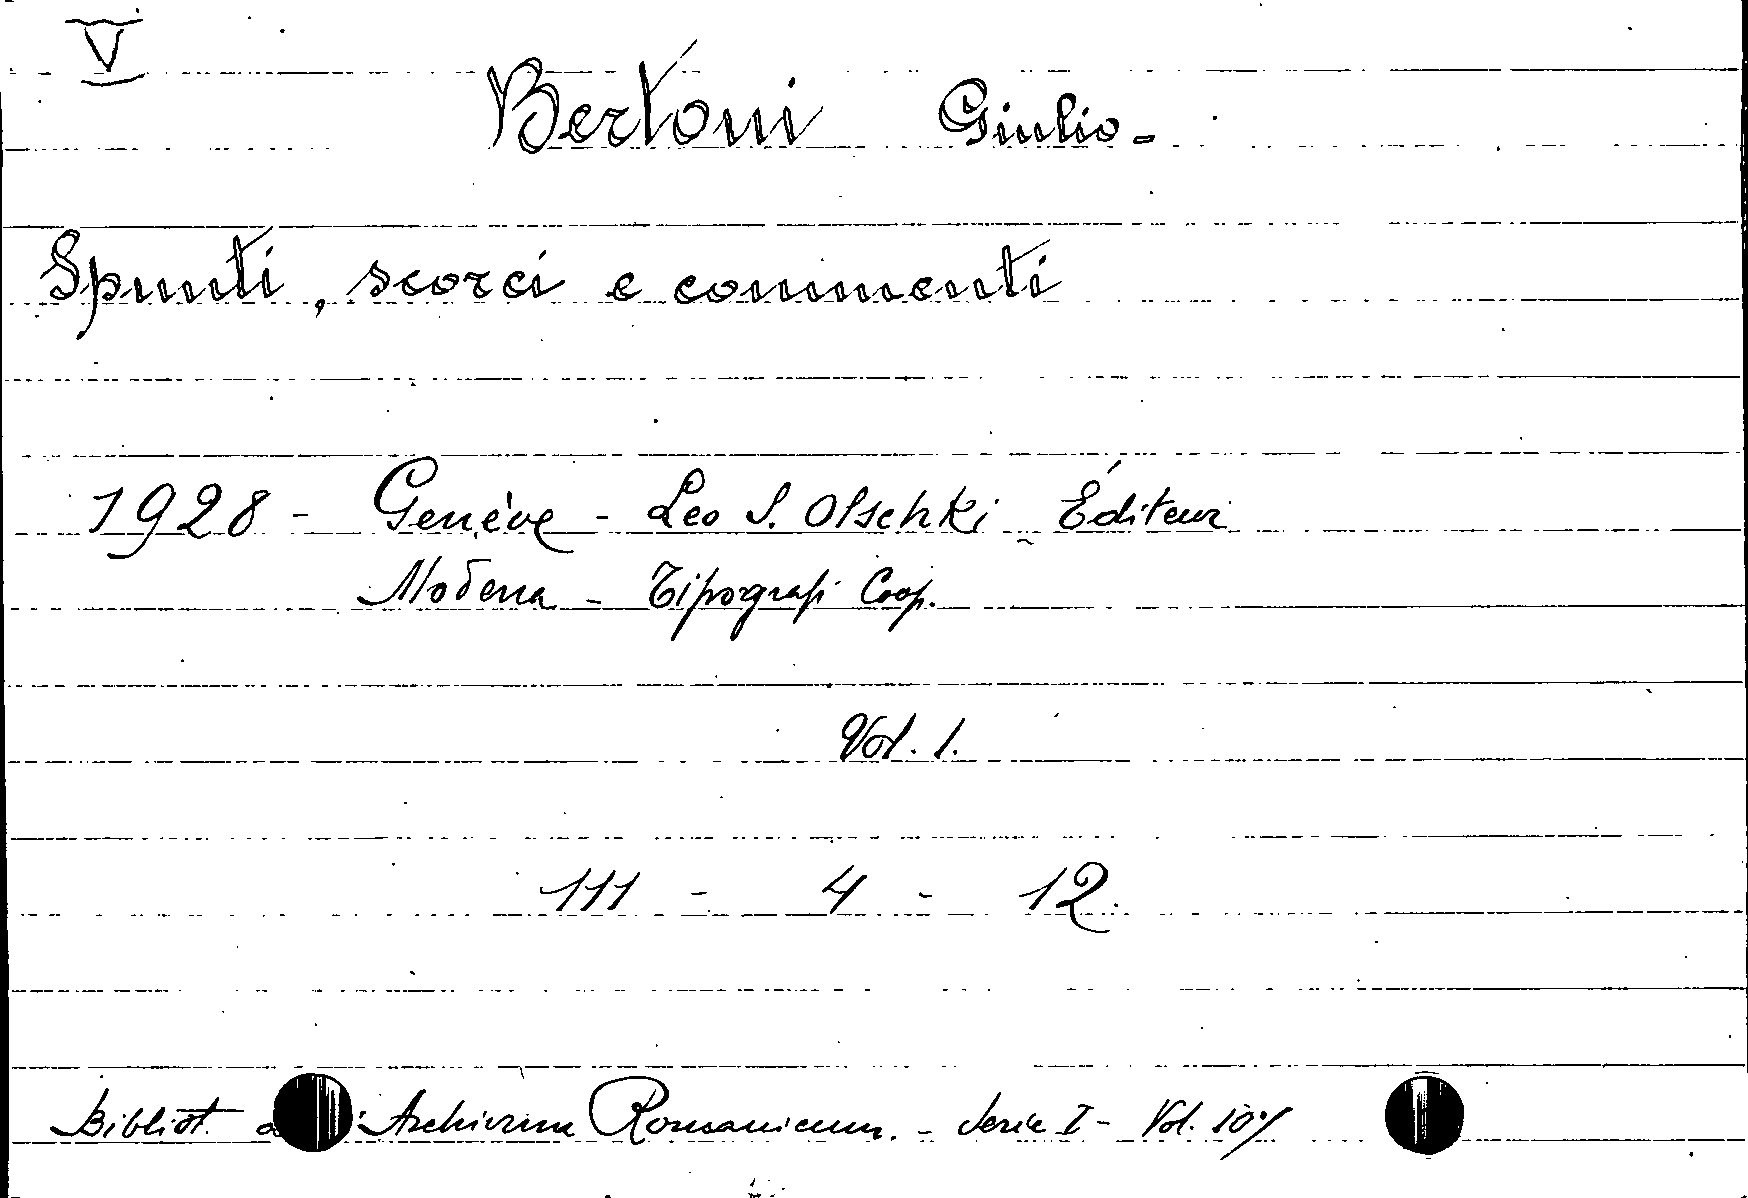 V
Bertoni Giulio -
Spunti, scorci e commenti
1928 - Genève - Leo S. Olschki - Éditeur
Modena - Tipografi Coop.
Vol. 1.
111 - 4 - 12.
Bibliot. Archivum Romanicum. - Serie I - Vol. 10°/